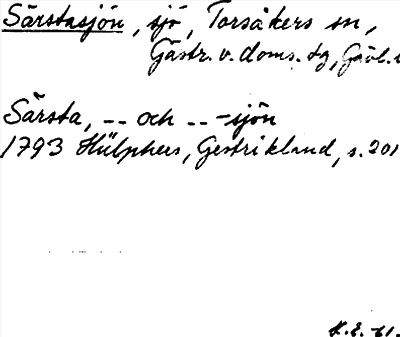 Särstasjön, sjö, Torsåkers sn,
Gästr. v. doms. tg, Gävl.
Särsta, -- och -- -sjön
1793 Hülphers, Gestrikland, s. 201
K.E. -61.